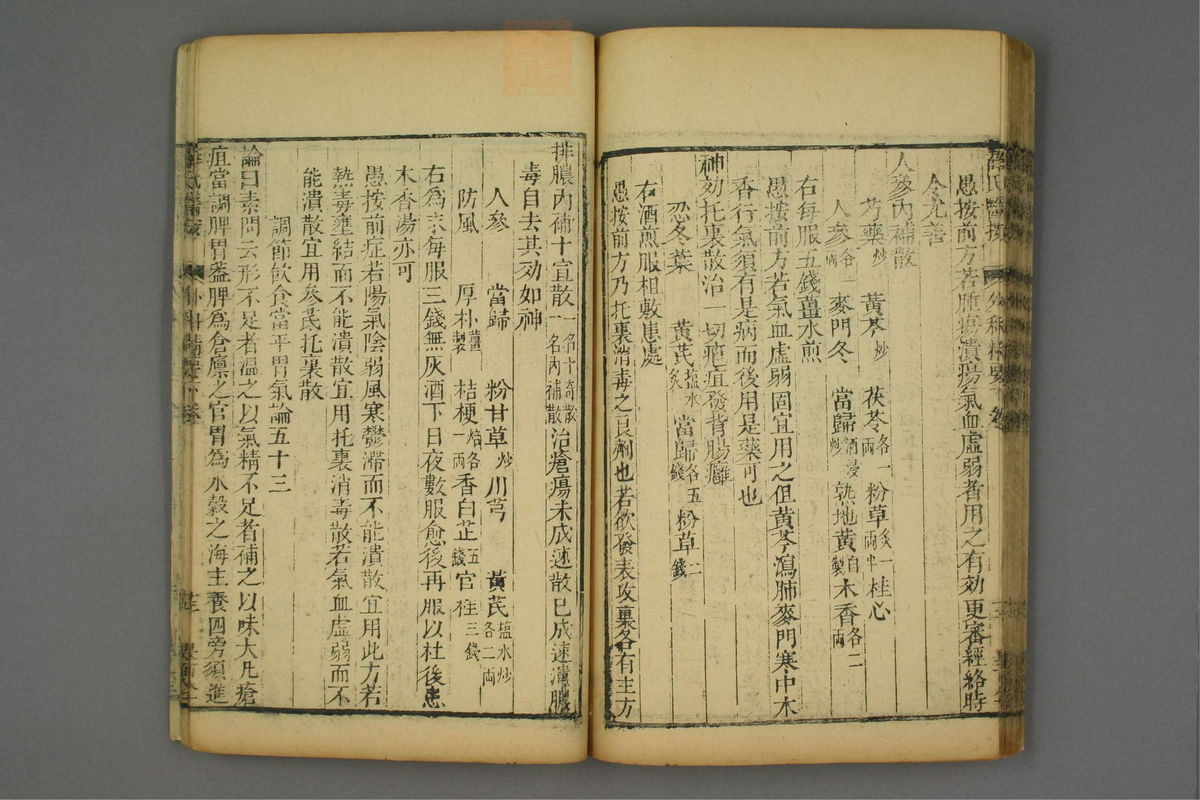 愚按前方若腫瘍潰瘍氣血虛弱者用之有効更審經絡時
令尤善
人參內補散
芍藥炒 黃芩炒 茯苓各一兩 粉草炙一兩半 桂心
人參各一兩 麥門冬 當歸酒浸炒 熟地黃自製 木香各二兩
右每服五錢薑水煎
愚按前方若氣血虛弱固宜用之但黃芩瀉肺麥門寒中木
香行氣須有是病而後用是藥可也
神効托裏散治一切癰疽發背腸癰
忍冬葉 黃芪塩水炙 當歸各五錢 粉草二錢
右酒煎服相敷患處
愚按前方乃托裏消毒之良劑也若欲發表攻裏各有主方
排膿內補十宣散一名十奇散一名內補散治瘡瘍未成速散已成速潰膿
毒自去其効如神
人參 當歸 粉甘草炒 川芎 黃芪塩水炒各二兩
防風 厚朴薑製 桔梗焙各一兩 香白芷五錢 官桂三錢
右為末每服三錢無灰酒下日夜數服愈後再服以杜後患
木香湯亦可
愚按前症若陽氣陰弱風寒鬱滯而不能潰散宜用此方若
熱毒壅結而不能潰散宜用托裏消毒散若氣血虛弱而不
能潰散宜用參芪托裏散
調節飲食當平胃氣論五十三
論曰素問云形不足者溫之以氣精不足者補之以味大凡瘡
疽當調脾胃蓋脾為倉廩之官胃為水穀之海主養四旁須進